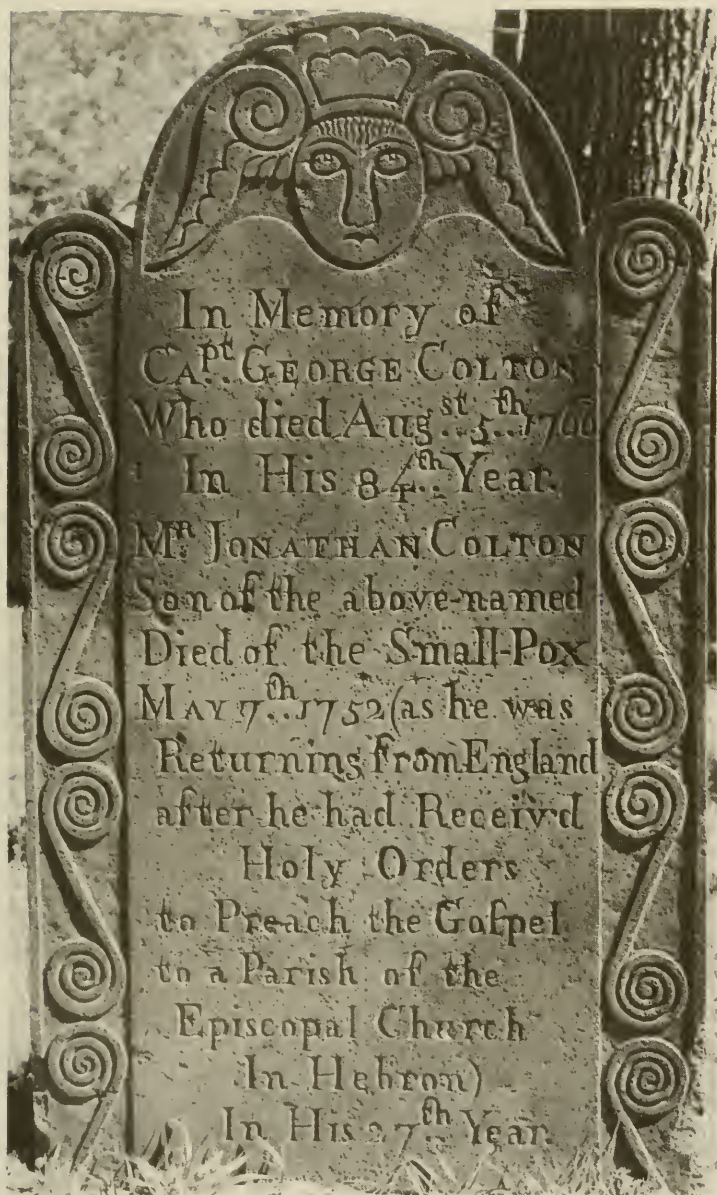 In Memory of
CAPt.. GEORGE COLTON
Who died Augst.. 5th..
In His 84th.. Year.
Mr. JONATHAN COLTON
Son of the above-named
Died of the Small-Pox
MAY 7th.. 1752 (as he was
Returning from England
after he had Receiv'd
Holy Orders
to Preach the Goſpel
to a Parish of the
Episcopal Church
In Hebron)
In His 27th.. Year.